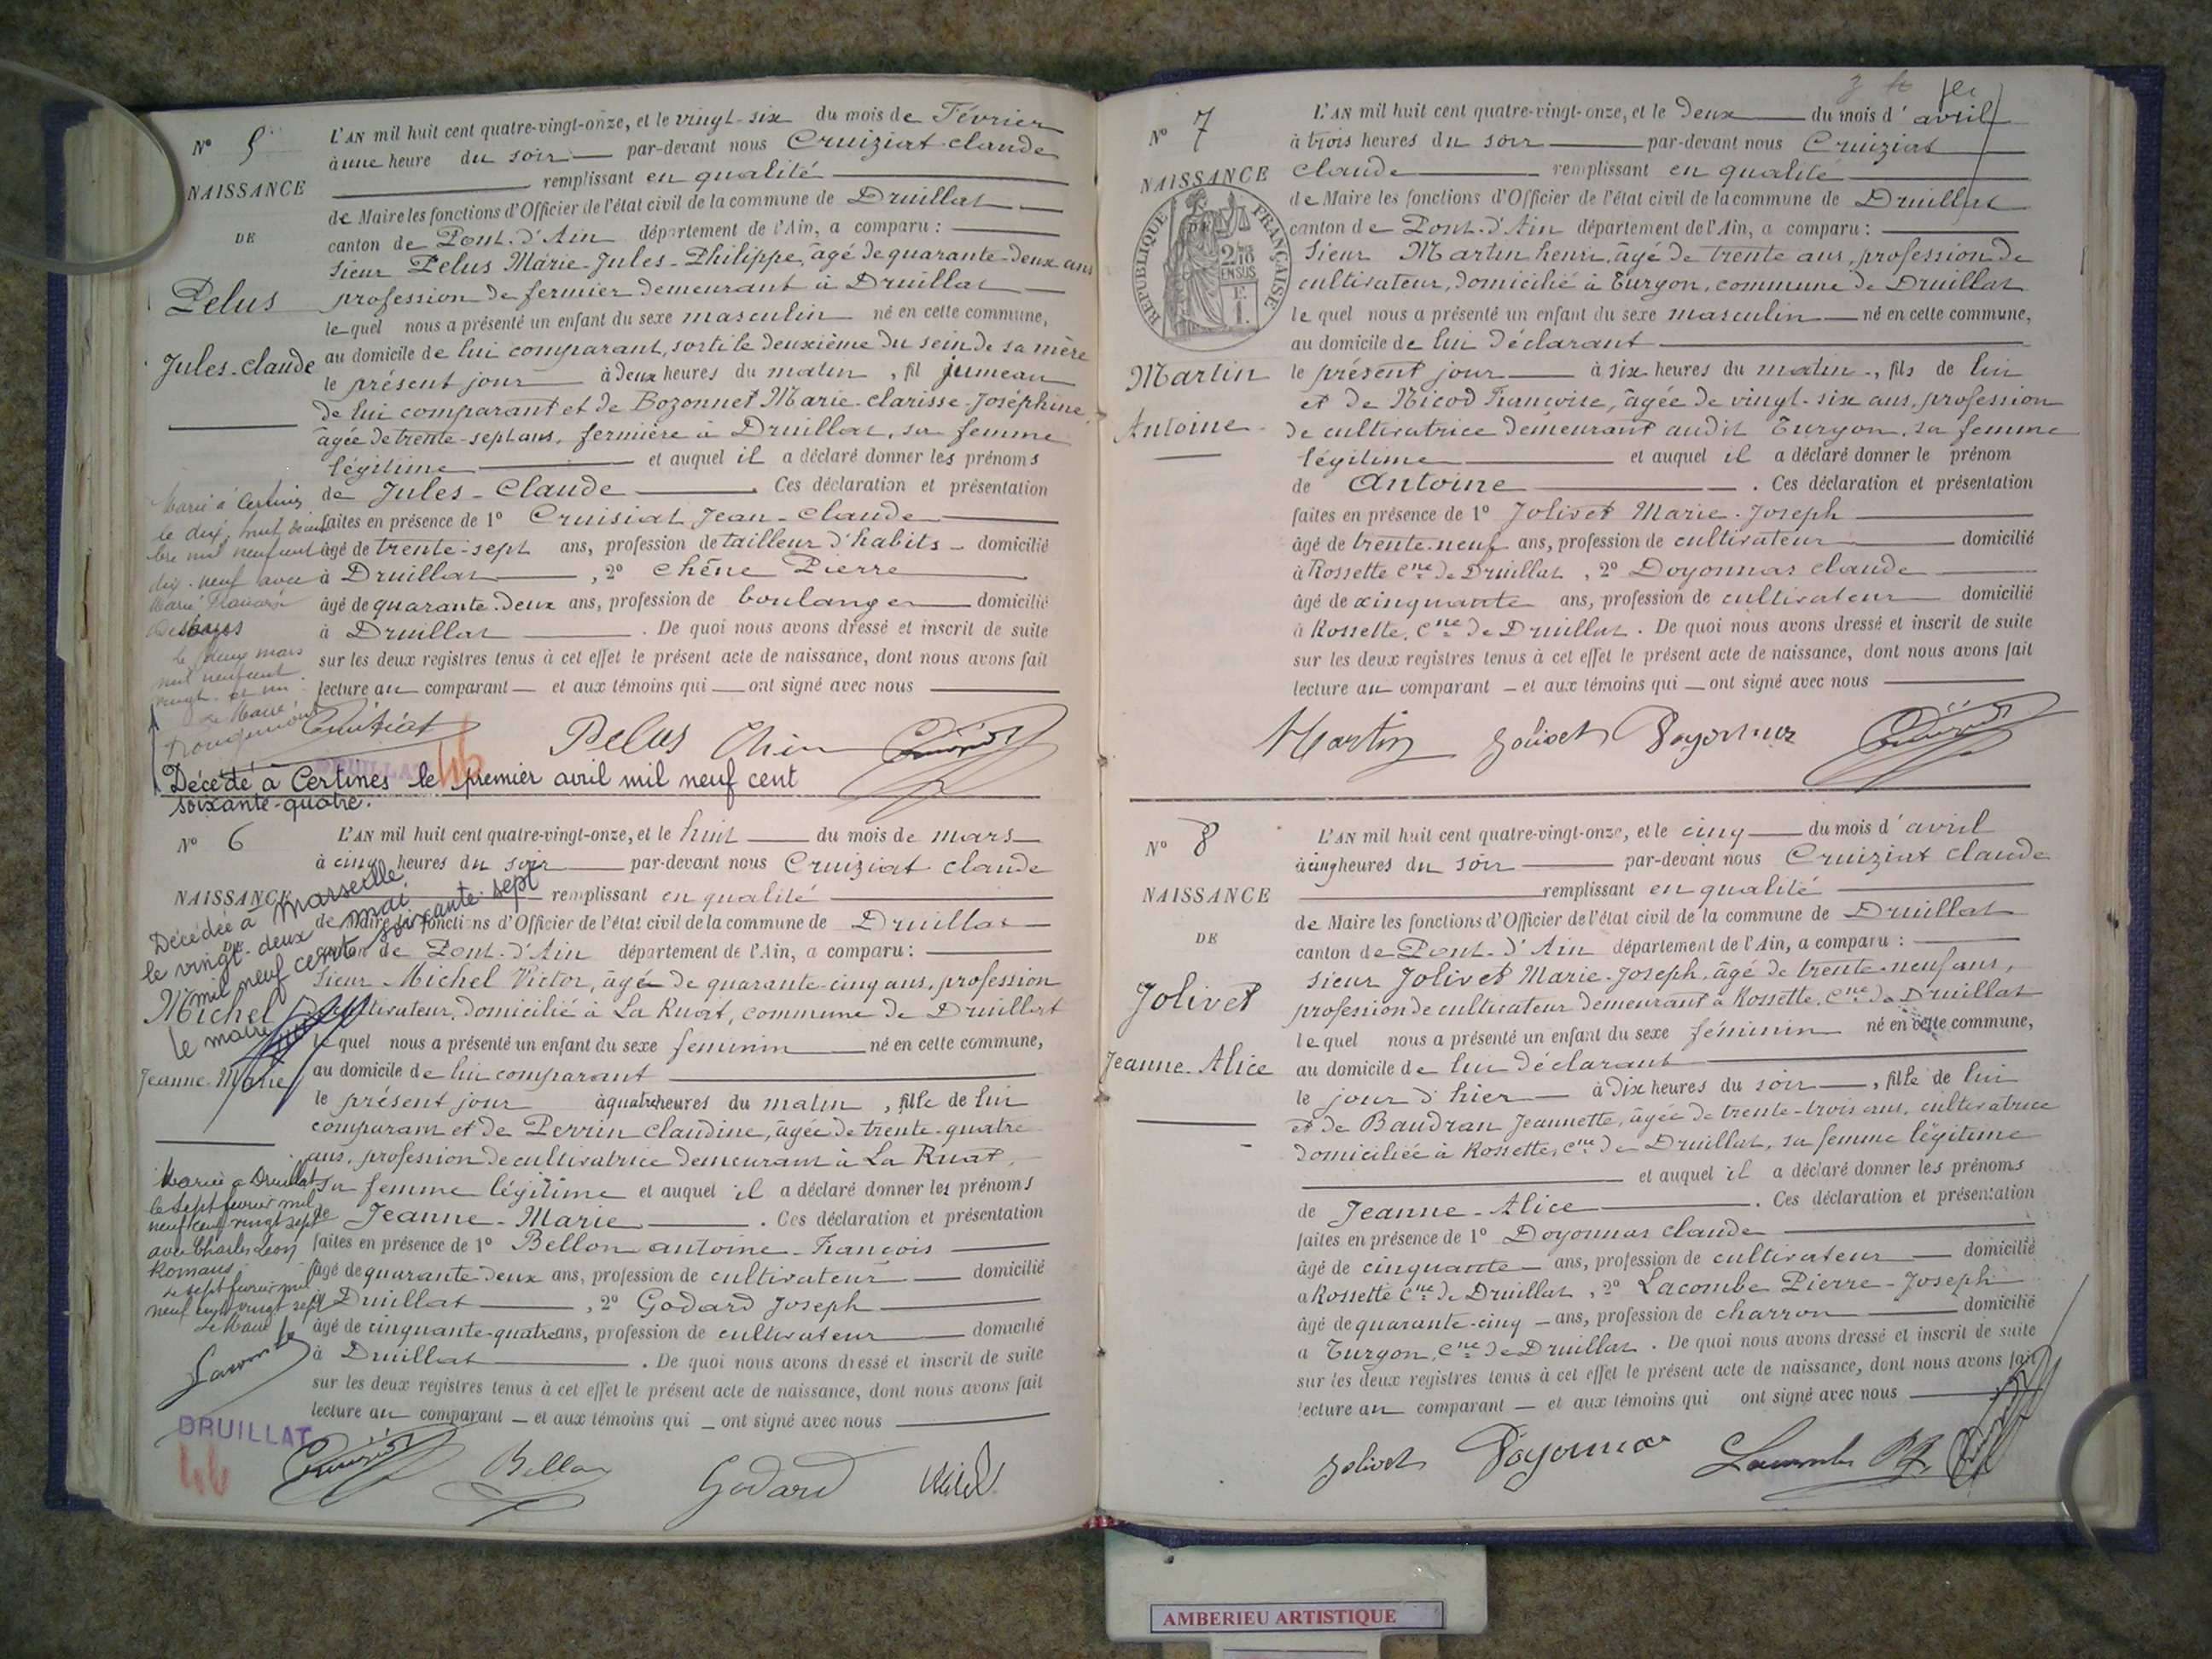 N° 5
NAISSANCE
DE
Pelus
Jules-Claude
L'AN mil huit cent quatre-vingt-onze, et le vingt-six du mois de Février
à une heure du soir par-devant nous Cruiziat claude
remplissant en qualité
de Maire les fonctions d'Officier de l'état civil de la commune de Druillat
canton de Pont-d'Ain département de l'Ain, a comparu :
Sieur Pelus Marie-Jules-Philippe, âgé de quarante-deux ans
profession de fermier demeurant à Druillat
lequel nous a présenté un enfant du sexe masculin né en cette commune,
au domicile de lui comparant, sorti le deuxième du sein de sa mère
le présent jour à deux heures du matin, fil jumeau
de lui comparant et de Bozonnet Marie-clarisse-Joséphine
âgée de trente-sept ans, fermière à Druillat, sa femme
légitime et auquel il a déclaré donner les prénoms
de Jules-Claude. Ces déclaration et présentation
faites en présence de 1° Cruisiat Jean-Claude
âgé de trente-sept ans, profession de tailleur d'habits domicilié
à Druillat, 2° Chêne Pierre
âgé de quarante-deux ans, profession de boulanger domicilié
à Druillat. De quoi nous avons dressé et inscrit de suite
sur les deux registres tenus à cet effet le présent acte de naissance, dont nous avons fait
lecture au comparant et aux témoins qui ont signé avec nous
Marié à Certines
le dix huit
mil neuf cent
dix-neuf avec
Marie
le deux mars
mil neuf cent
vingt et un
Le Maire
Cruiziat Pelus Chêne
DRUILLAT
Décédé à Certines le premier avril mil neuf cent
soixante-quatre.
N° 6
NAISSANCE
DE
Michel
Jeanne-Marie
Décédée à Marseille
le vingt-deux mai
mil neuf cent soixante sept
le maire
L'AN mil huit cent quatre-vingt-onze, et le huit du mois de mars
à cinq heures du soir par-devant nous Cruiziat claude
remplissant en qualité
de Maire les fonctions d'Officier de l'état civil de la commune de Druillat
canton de Pont-d'Ain département de l'Ain, a comparu :
Sieur Michel Victor, âgé de quarante-cinq ans, profession
cultivateur, domicilié à La Ruat, commune de Druillat
lequel nous a présenté un enfant du sexe feminin né en cette commune,
au domicile de lui comparant
le présent jour à quatre heures du matin, fille de lui
comparant et de Perrin claudine, âgée de trente-quatre
ans, profession de cultivatrice demeurant à La Ruat,
sa femme légitime et auquel il a déclaré donner les prénoms
de Jeanne-Marie. Ces déclaration et présentation
faites en présence de 1° Bellon antoine-François
âgé de quarante deux ans, profession de cultivateur domicilié
à Druillat, 2° Godard Joseph
âgé de cinquante-quatre ans, profession de cultivateur domicilié
à Druillat. De quoi nous avons dressé et inscrit de suite
sur les deux registres tenus à cet effet le présent acte de naissance, dont nous avons fait
lecture au comparant et aux témoins qui ont signé avec nous
Mariée à Druillat
le sept février mil
neuf cent vingt sept
avec Charles Léon
Romans
Le sept février mil
neuf cent vingt sept
Le Maire
DRUILLAT
Cruiziat Bellon Godard Michel
N° 7
NAISSANCE
REPUBLIQUE FRANÇAISE
2/10 EN SUS
Martin
Antoine
L'AN mil huit cent quatre-vingt-onze, et le Deux du mois d'avril
à trois heures du soir par-devant nous Cruiziat
claude remplissant en qualité
de Maire les fonctions d'Officier de l'état civil de la commune de Druillat
canton de Pont-d'Ain département de l'Ain, a comparu :
Sieur Martin henri, âgé de trente ans, profession de
cultivateur, domicilié à Turgon, commune de Druillat
lequel nous a présenté un enfant du sexe masculin né en cette commune,
au domicile de lui déclarant
le présent jour à six heures du matin, fils de lui
et de Nicod Françoise, âgée de vingt-six ans, profession
de cultivatrice demeurant audit Turgon, sa femme
légitime et auquel il a déclaré donner le prénom
de Antoine. Ces déclaration et présentation
faites en présence de 1° Jolivet Marie-Joseph
âgé de trente-neuf ans, profession de cultivateur domicilié
à Rossette Cne de Druillat, 2° Doyonnas claude
âgé de cinquante ans, profession de cultivateur domicilié
à Rossette, Cne de Druillat. De quoi nous avons dressé et inscrit de suite
sur les deux registres tenus à cet effet le présent acte de naissance, dont nous avons fait
lecture au comparant et aux témoins qui ont signé avec nous
Martin Jolivet Doyonnas
N° 8
NAISSANCE
DE
Jolivet
Jeanne-Alice
L'AN mil huit cent quatre-vingt-onze, et le cinq du mois d'avril
à cinq heures du soir par-devant nous Cruiziat claude
remplissant en qualité
de Maire les fonctions d'Officier de l'état civil de la commune de Druillat
canton de Pont-d'Ain département de l'Ain, a comparu :
sieur Jolivet Marie-Joseph, âgé de trente-neuf ans,
profession de cultivateur demeurant à Rossette, Cne de Druillat
lequel nous a présenté un enfant du sexe féminin né en cette commune,
au domicile de lui déclarant
le jour d'hier à dix heures du soir, fille de lui
et de Baudran Jeannette, âgée de trente-trois ans, cultivatrice
domiciliée à Rossette, Cne de Druillat, sa femme légitime
et auquel il a déclaré donner les prénoms
de Jeanne-Alice. Ces déclaration et présentation
faites en présence de 1° Doyonnas claude
âgé de cinquante ans, profession de cultivateur domicilié
à Rossette Cne de Druillat, 2° Lacombe Pierre-Joseph
âgé de quarante-cinq ans, profession de charron domicilié
à Turgon, Cne de Druillat. De quoi nous avons dressé et inscrit de suite
sur les deux registres tenus à cet effet le présent acte de naissance, dont nous avons fait
lecture au comparant et aux témoins qui ont signé avec nous
Jolivet Doyonnas Lacombe
AMBERIEU ARTISTIQUE